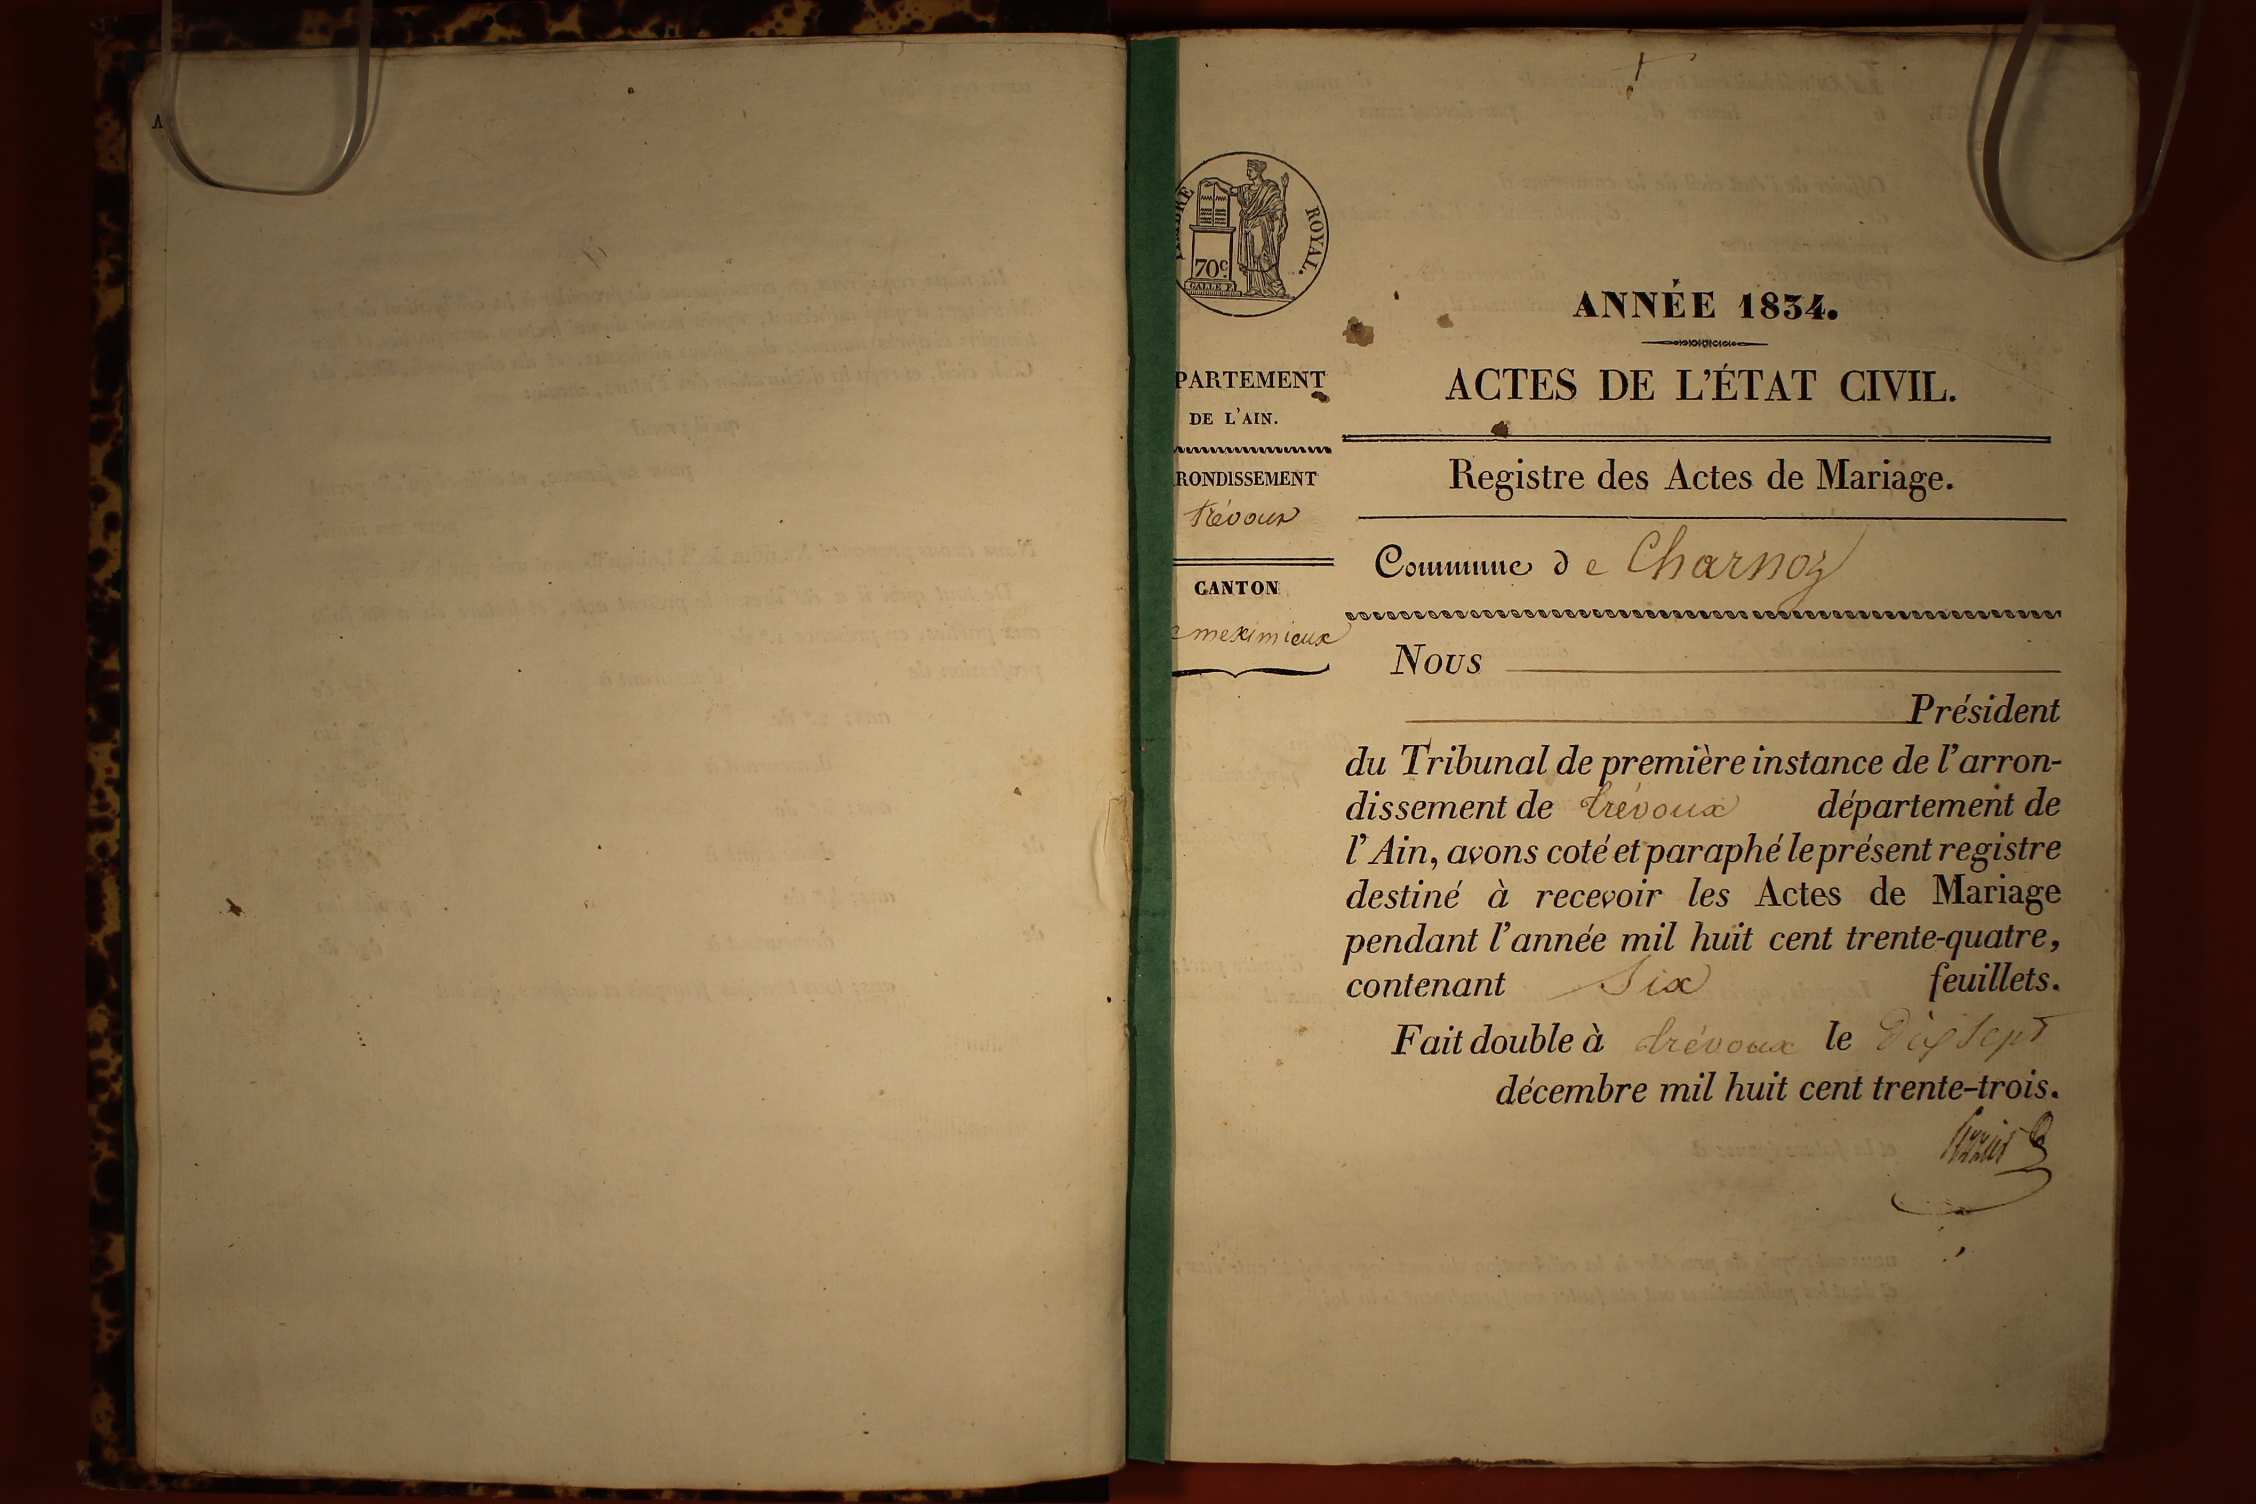 TIMBRE ROYAL.
70c.
GALLE F.
PARTEMENT
DE L'AIN.
RONDISSEMENT
Trévoux
CANTON
e meximieux
ANNÉE 1834.
ACTES DE L'ÉTAT CIVIL.
Registre des Actes de Mariage.
Commune de Charnoz
Nous
Président
du Tribunal de première instance de l'arron-
dissement de trévoux département de
l'Ain, avons coté et paraphé le présent registre
destiné à recevoir les Actes de Mariage
pendant l'année mil huit cent trente-quatre,
contenant Six feuillets.
Fait double à trévoux le Dix sept
décembre mil huit cent trente-trois.